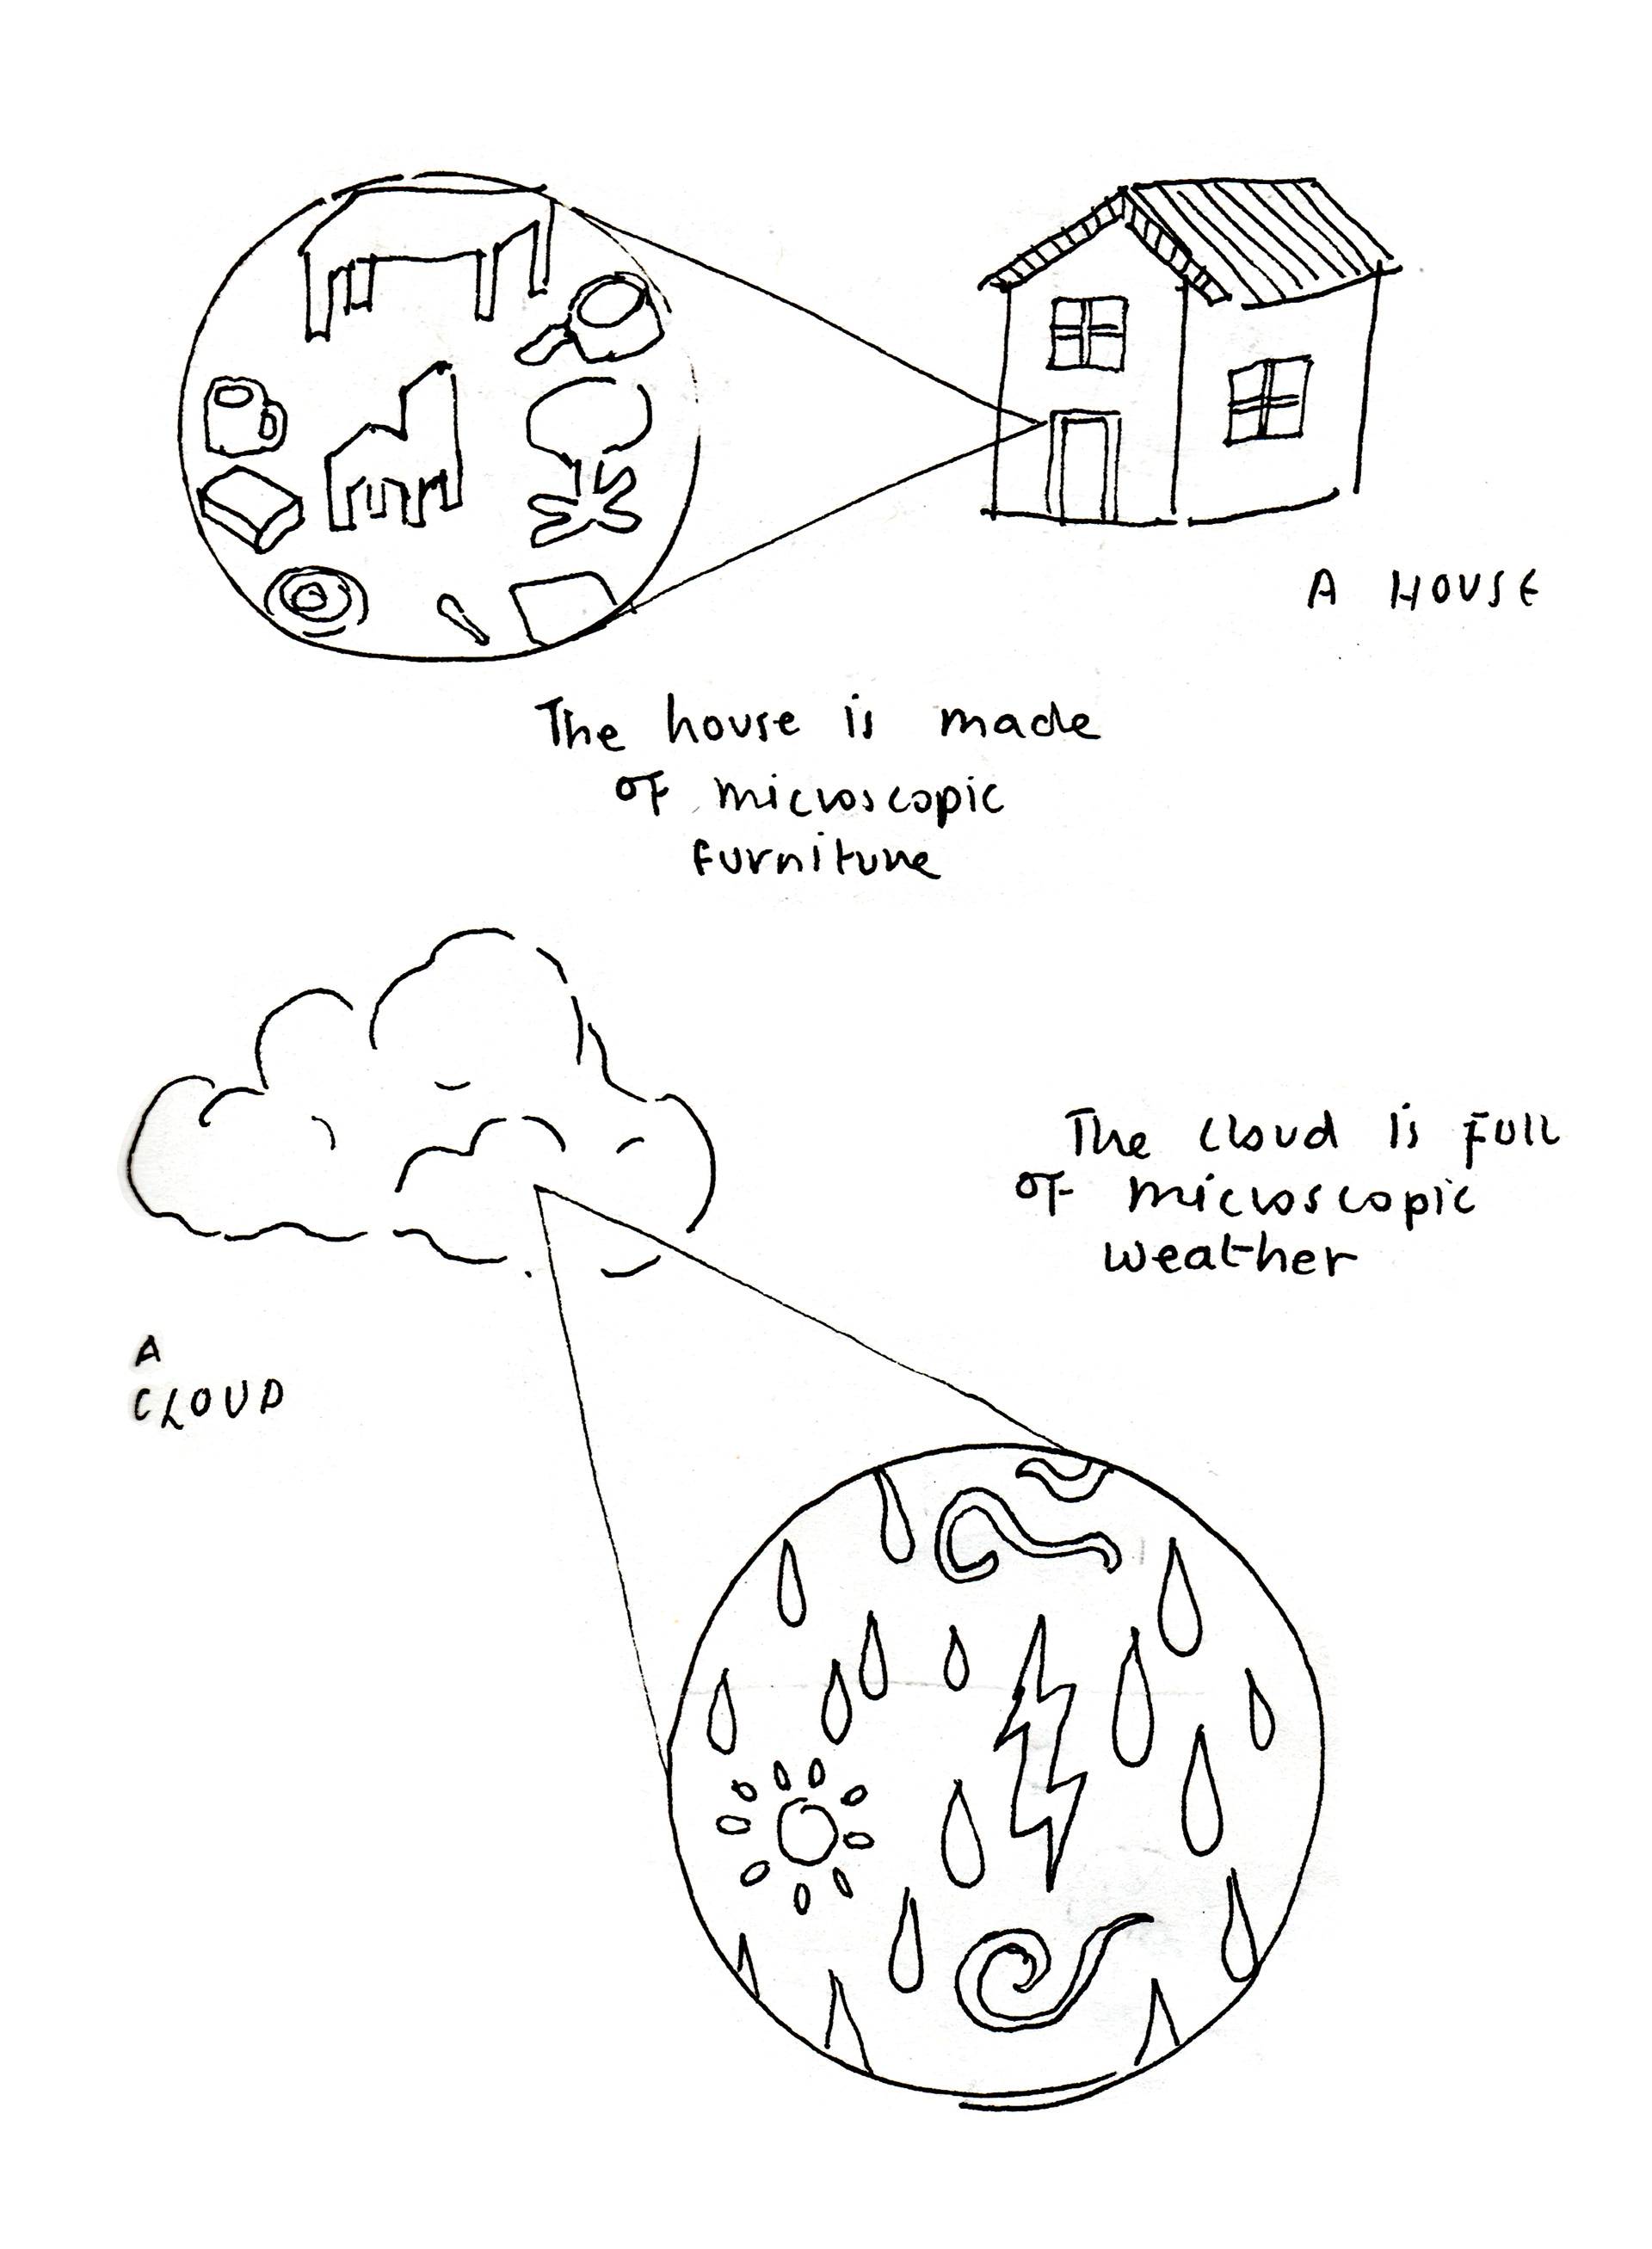 A HOUSE
The house is made
of microscopic
furniture
The cloud is full
of microscopic
weather
A
CLOUD